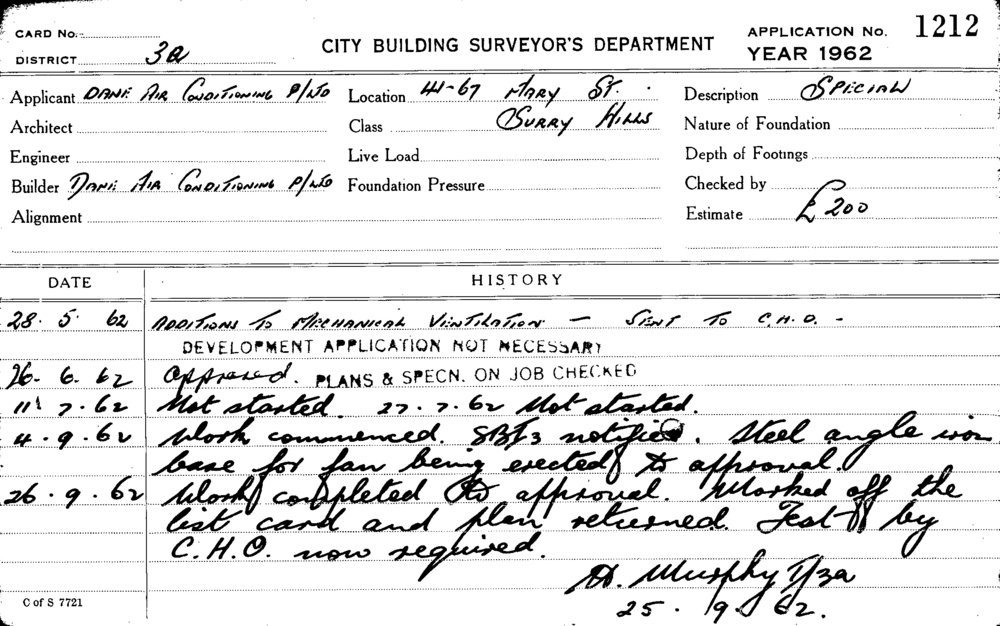 CARD No.
DISTRICT 3a
CITY BUILDING SURVEYOR'S DEPARTMENT
APPLICATION No. 1212
YEAR 1962
Applicant DANE AIR CONDITIONING P/LTD
Location 41-67 MARY ST.
Description SPECIAL
Architect
Class SURRY HILLS
Nature of Foundation
Engineer
Live Load
Depth of Footings
Builder DANE AIR CONDITIONING P/LTD
Foundation Pressure
Checked by
Alignment
Estimate £ 200
DATE HISTORY
28. 5. 62 ADDITIONS TO MECHANICAL VENTILATION — SENT TO C.H.O. -
DEVELOPMENT APPLICATION NOT NECESSARY
26. 6. 62 Approved. PLANS & SPECN. ON JOB CHECKED
11. 7. 62 Not started. 27. 7. 62 Not started.
4. 9. 62 Work commenced. notified. Steel angle iron
base for fan being erected to approval.
26. 9. 62 Work completed to approval. Marked off the
list card and plan returned. Test by
C.H.O. now required.
H. Murphy
25. 9. 62.
C of S 7721